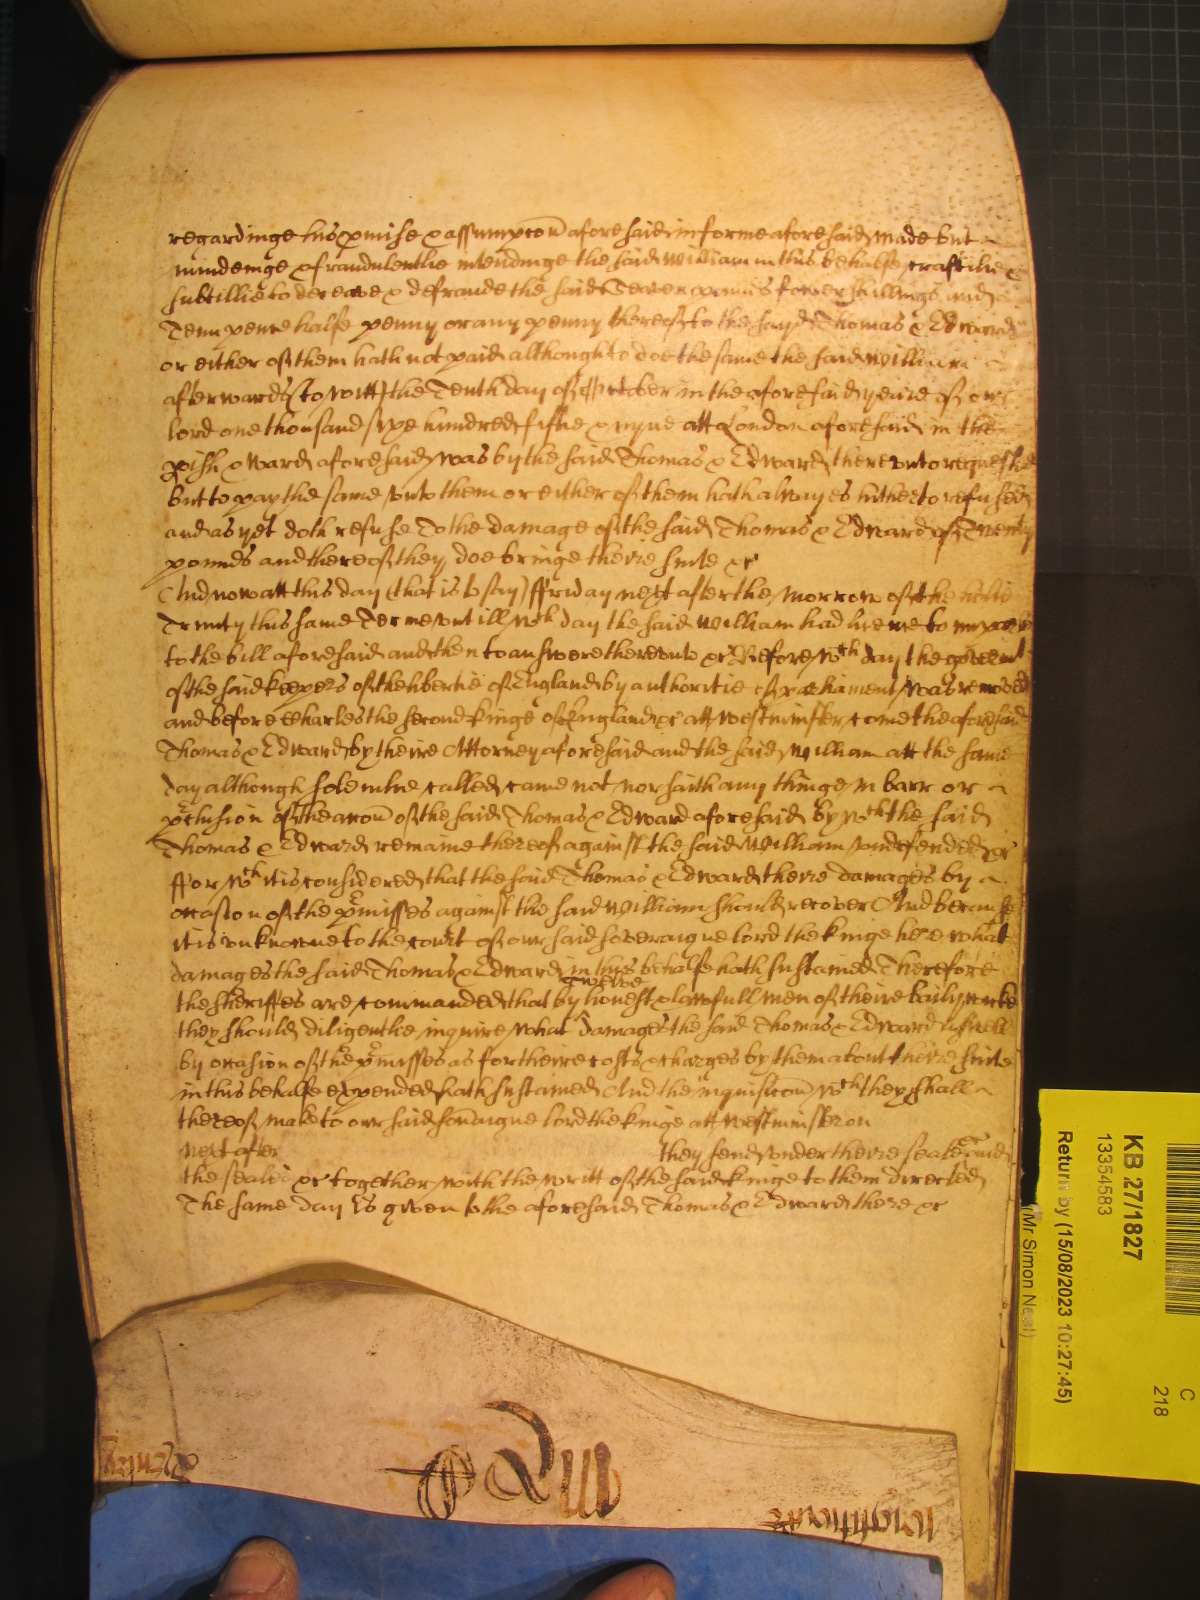 regardinge his pmise & assumpcon aforesaid in forme aforesaid made but
mindeinge & fraudulentlie intendinge the said William in this behalfe craftilie &
subtillie to deceave & defraude the said Seaven pounds fower shillings and
Tenn pence halfe penny or any penny thereof to the said Thomas & Edward
or either of them hath not paid although to doe the same the said William
afterwards to witt the Tenth day of October in the aforesaid yeare of our
lord one thousand sixe hundred fiftie & nyne att London aforesaid in the
pish & ward aforesaid was by the said Thomas & Edward therevnto requested
but to pay the same vnto them or either of them hath alwayes hitherto refused
and as yet doth refuse To the damage of the said Thomas & Edward of Twenty
pounds and thereof they doe bringe theire suite &c
And now att this day (that is to say) ffriday next after the morrow of the holie
Trinity this same Terme vntill wch day the said William had licence to imparle
to the bill aforesaid and then to answere therevnto &c Before wch day the govermt
of the said keepers of the libertie of England by authoritie of parliament was removed
and before Charles the second kinge of England &c att westminster come the aforesaid
Thomas & Edward by theire Attorney aforesaid and the said William att the same
day although solemlie called came not nor saith any thinge in barr or
pclusion of the accon of the said Thomas & Edward aforesaid by wch the said
Thomas & Edward remaine thereof against the said William vndefended &c
ffor wch it is considered that the said Thomas & Edward theire damages by
occasion of the pmisses against the said William should recover And because
it is vnknowne to the court of our said soveraigne lord the kinge here what
damages the said Thomas & Edward in this behalfe hath sustained Therefore
the sheriffes are commanded that by twelve honest & lawfull men of theire bailywicke
they should diligentlie inquire what damages the said Thomas & Edward aswell
by occasion of the pmisses as for theire costs & charges by them about theire suite
in this behalfe expended hath sustained And the inquisicon wch they shall
thereof make to our said sovaigne lord the kinge att westminster on
next after they send vnder theire seales &c and
the seales &c together with the writt of the said kinge to them directed
The same day is given to the aforesaid Thomas & Edward there &c
KB 27/1827
13354583
Return by (15/08/2023 10:27:45)
(Mr Simon Neal)
C
218